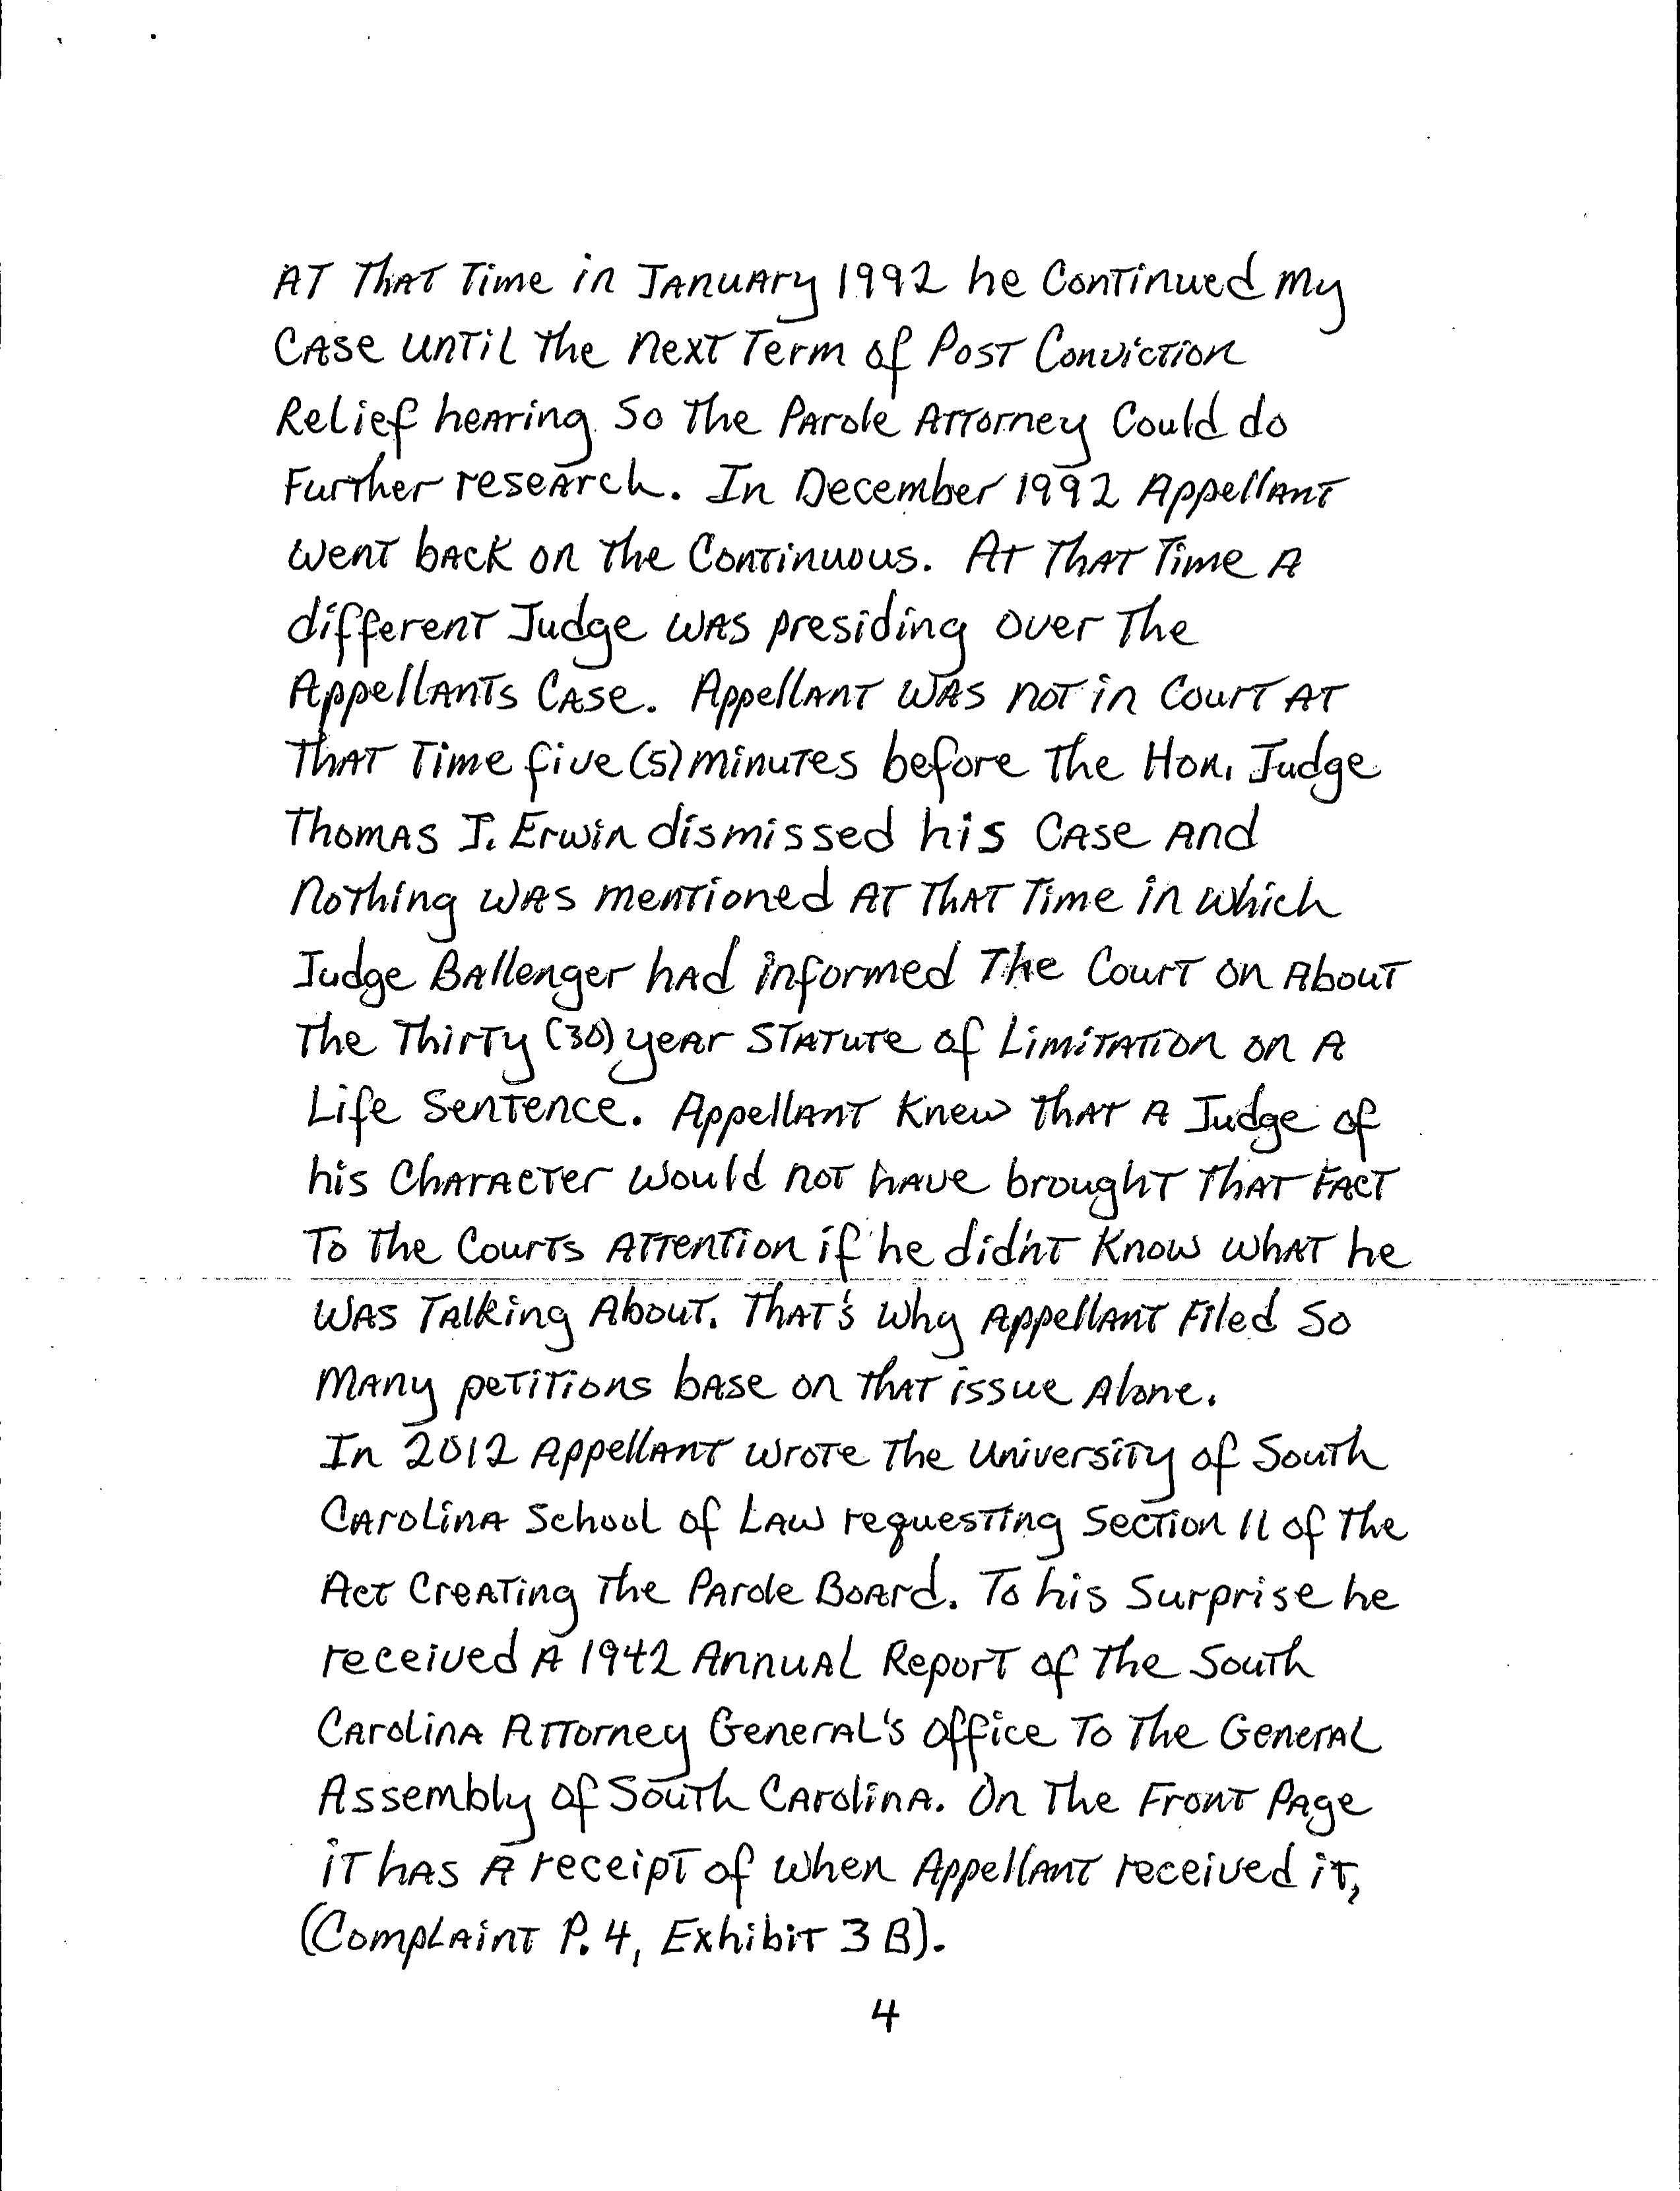 At that time in January 1992 he continued my
case until the next term of Post Conviction
Relief hearing so the Parole Attorney could do
further research. In December 1992 Appellant
went back on the continuous. At that time a
different Judge was presiding over the
Appellants case. Appellant was not in court at
that time five (5) minutes before the Hon. Judge
Thomas J. Erwin dismissed his case and
nothing was mentioned at that time in which
Judge Ballenger had informed the court on about
the thirty (30) year statute of limitation on a
life sentence. Appellant knew that a Judge of
his character would not have brought that fact
to the courts attention if he didn't know what he
was talking about. That's why Appellant filed so
many petitions base on that issue alone.
In 2012 Appellant wrote the University of South
Carolina School of Law requesting Section 11 of the
Act Creating the Parole Board. To his surprise he
received a 1942 Annual Report of the South
Carolina Attorney General's office to the General
Assembly of South Carolina. On the front page
it has a receipt of when Appellant received it,
(Complaint P. 4, Exhibit 3 B).
4